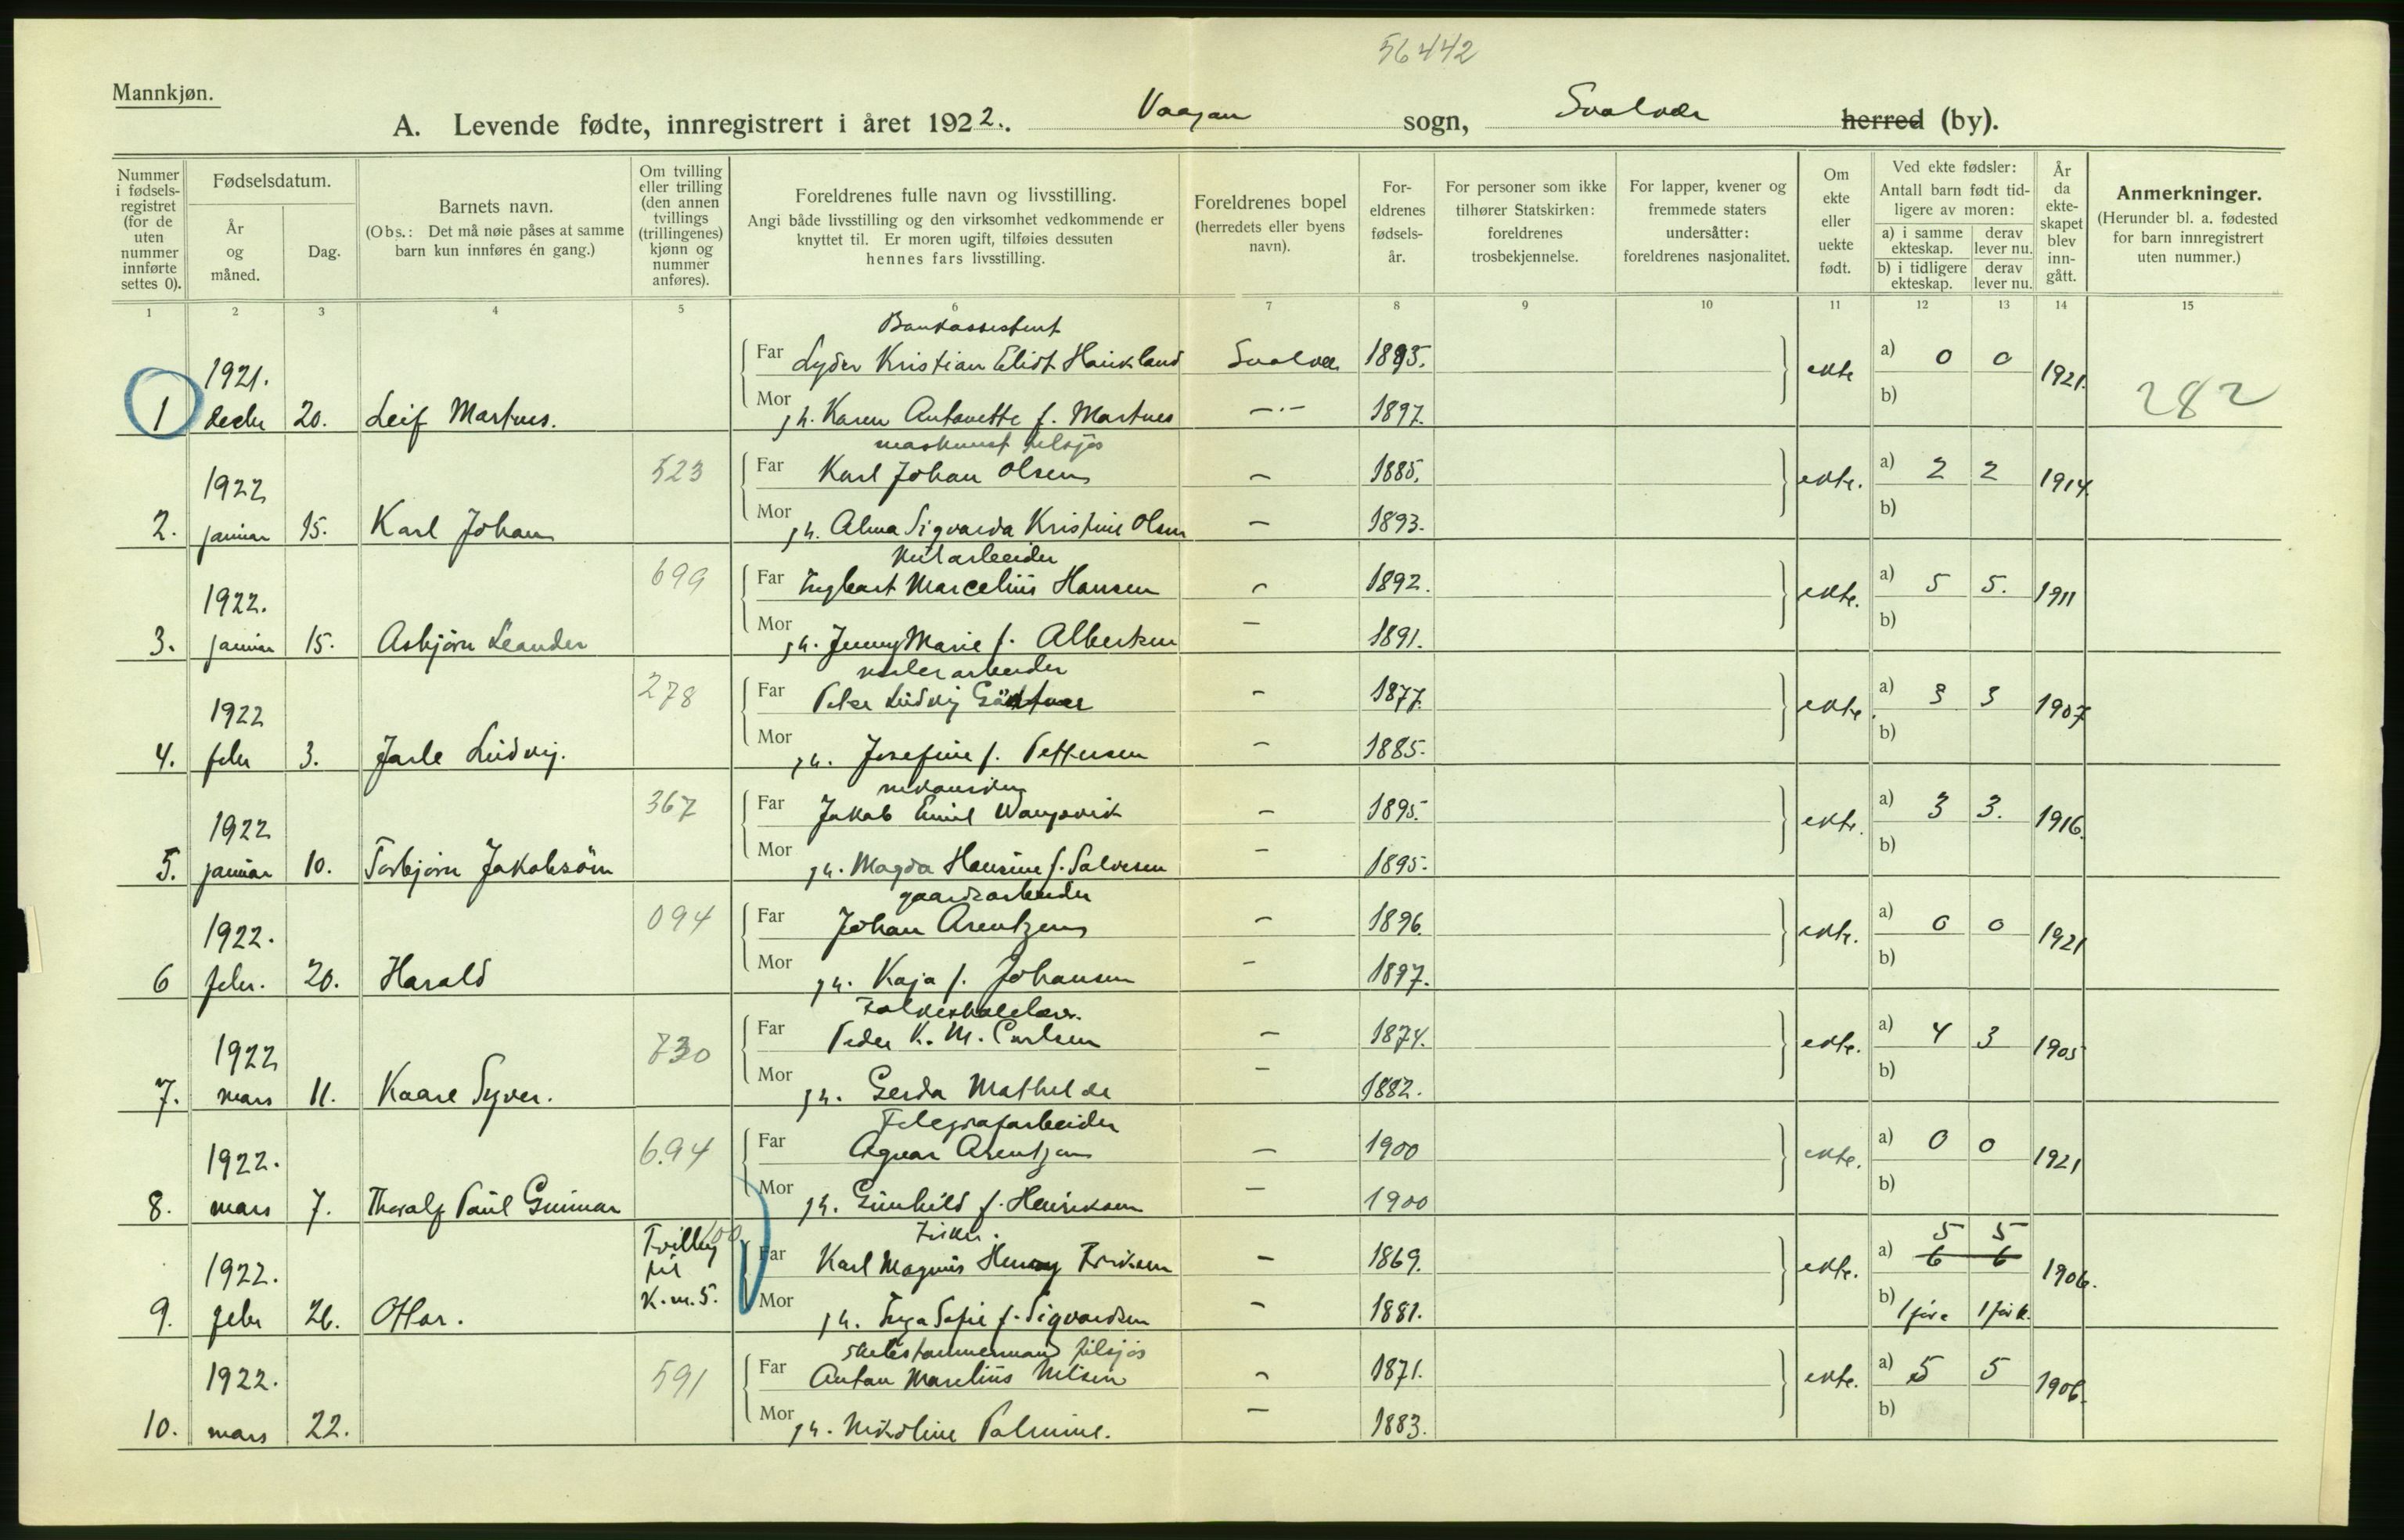 56442
Mannkjøn.
A. Levende fødte, innregistrert i året 1922. Vaagan sogn, Svolvær herred (by).
Nummer i fødselsregistret (for de uten nummer innførte settes 0).
Fødselsdatum.
År og måned.
Dag.
Barnets navn.
(Obs.: Det må nøie påses at samme barn kun innføres én gang.)
Om tvilling eller trilling (den annen tvillings (trillingenes) kjønn og nummer anføres).
Foreldrenes fulle navn og livsstilling.
Angi både livsstilling og den virksomhet vedkommende er knyttet til. Er moren ugift, tilføies dessuten hennes fars livsstilling.
Foreldrenes bopel (herredets eller byens navn).
Foreldrenes fødselsår.
For personer som ikke tilhører Statskirken: foreldrenes trosbekjennelse.
For lapper, kvener og fremmede staters undersåtter: foreldrenes nasjonalitet.
Om ekte eller uekte født.
Ved ekte fødsler:
Antall barn født tidligere av moren:
a) i samme ekteskap. derav lever nu.
b) i tidligere ekteskap. derav lever nu.
År da ekteskapet blev inngått.
Anmerkninger.
(Herunder bl. a. fødested for barn innregistrert uten nummer.)
1 2 3 4 5 6 7 8 9 10 11 12 13 14 15
Bankassistent
1921. Far Lyder Kristian Eliot Haukland Svolvær 1895. ekte a) 0 0 1921.
1 decbr 20. Leif Martnes. Mor h. Karen Antonette f. Martnes —·— 1897. b) 282
maskinist tilsjøs
1922 523 Far Karl Johan Olsen — 1885. ekte. a) 2 2 1914.
2. januar 15. Karl Johan Mor h. Alma Sigvarda Kristine Olsen — 1893. b)
1922. 699 Far Ingbart Marcelius Hansen — 1892. ekte. a) 5 5. 1911
3. januar 15. Asbjørn Leander Mor h. Jenny Marie f. Albertsen — 1891. b)
1922 278 Far Peter Ludvig — 1877. ekte. a) 3 3 1907
4. febr 3. Jarle Ludvig. Mor h. Josefine f. Pettersen — 1885. b)
1922 367 Far Jakob Emil — 1895. ekte. a) 3 3. 1916.
5. januar 10. Torbjørn Jakobsøn Mor h. Magda Hansine f. Salvesen — 1895. b)
gaardsarbeider
1922. 094 Far Johan Arentzen — 1896. ekte. a) 0 0 1921
6 febr. 20. Harald Mor h. Kaja f. Johansen — 1897. b)
Folkeskolelærer.
1922 730 Far Peder K. M. Carlsen — 1874. ekte. a) 4 3 1905
7. mars 11. Kaare Syver. Mor h. Gerda Mathilde — 1882. b)
Telegrafarbeider
1922. 694 Far Agnar Arentzen — 1900 ekte. a) 0 0 1921
8. mars 7. Thoralf Paul Gunnar Mor h. Gunhild f. Henriksen — 1900 b)
Tvilling 100 Fisker. 5 5
1922. til Far Karl Magnus Henry Eriksen — 1869. ekte. a) 6 6 1906.
9. febr 26. Ottar. K.m.5. Mor h. Inga Sofie f. Sigvardsen — 1881. b) 1 før e 1 før e.
skibstømmermand tilsjøs
1922. 591 Far Anton Marelius Nilsen — 1871. ekte. a) 5 5 1906.
10. mars 22. Mor h. Nikoline Palmine. — 1883. b)